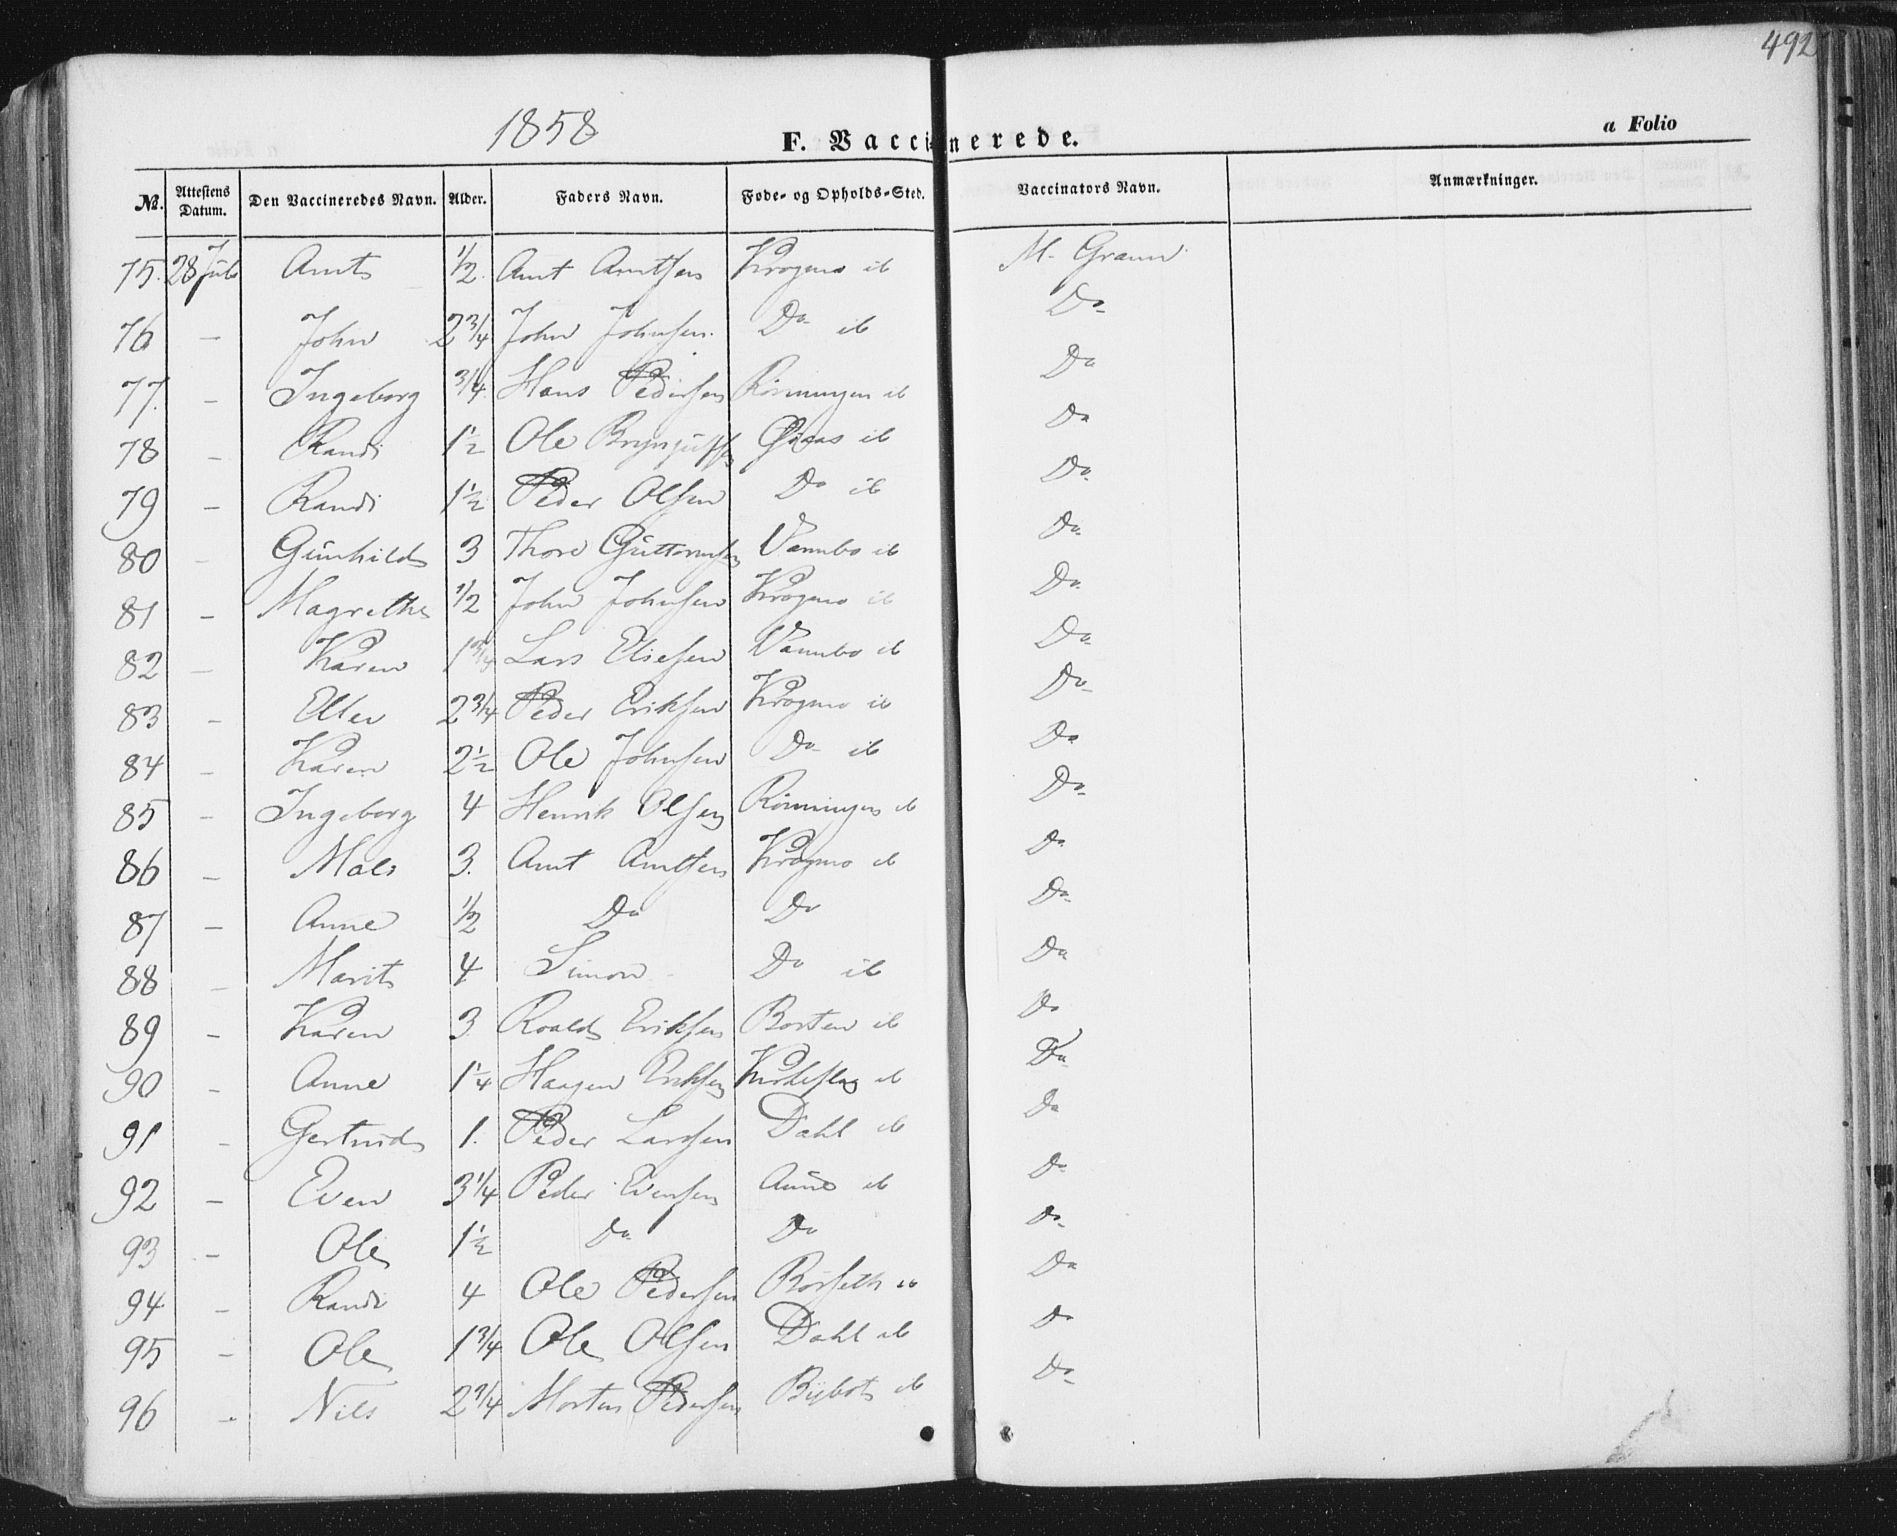 492
1858
F. Vaccinerede.
a Folio
№. Attestens Datum. Den Vaccineredes Navn. Alder. Faders Navn. Føde- og Opholds-Sted. Vaccinators Navn. Anmærkninger.
75. 28 Juli Arnt ½ Arnt Arntsen Krogmo ib M. Gramn
76 - John 2¾ John Johnsen Do ib Do
77. - Ingeborg ¾ Hans Pedersen Rønningen ib Do
78 - Randi 1½ Ole ib Do
79 - Randi 1½ Peder Olsen Do ib Do
80 - Gunhild 3 Thore Guttormsen Vannbo ib Do
81 - Magrethe ½ John Johnsen Krogmo ib Do
82 - Karen 1¾ Lars Eliesen Vannbo ib Do
83 - Ellen 2¾ Peder Eriksen Krogmo ib Do
84 - Karen 2½ Ole Johnsen Do ib Do
85 - Ingeborg 4 Henrik Olsen Rønningen ib Do
86 - Mali 3. Arnt Arntsen Krogmo ib Do
87 - Anne ½ Do Do Do
88 - Marit 4 Simon Do ib Do
89 - Karen 3 Roald Eriksen Borten ib Do
90 - Anne 1¼ Haagen Eriksen ib Do
91 - Gertrud 1. Peder Larssen Dahl ib Do
92 - Even 3¼ Peder Evensen Aune ib Do
93 - Ole 1½ Do Do Do
94 - Randi 4 Ole Pedersen Børseth ib Do
95 - Ole 1¾ Ole Olsen Dahl ib Do
96 - Nils 2¾ Morten Pedersen ib Do